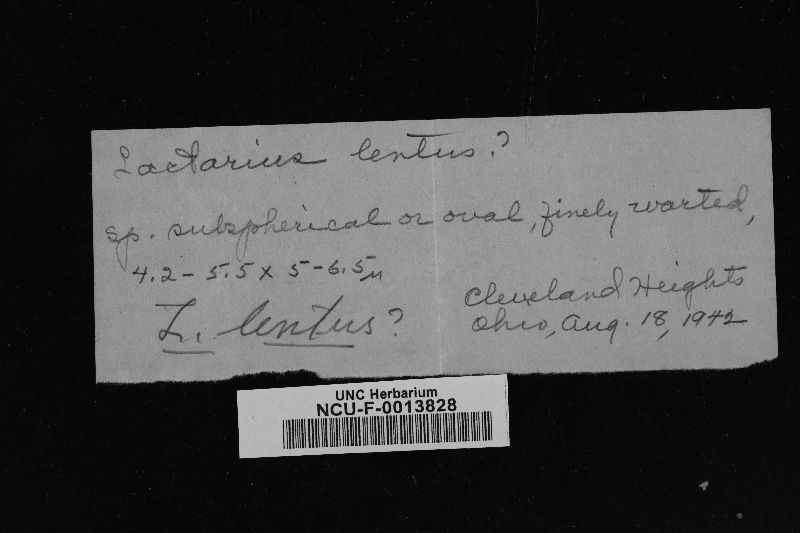 Lactarius lentus?
sp. subspherical or oval, finely warted,
4.2 - 5.5 x 5 - 6.5 µ
L. lentus?
Cleveland Heights
Ohio, Aug. 18, 1942
UNC Herbarium
NCU-F-0013828